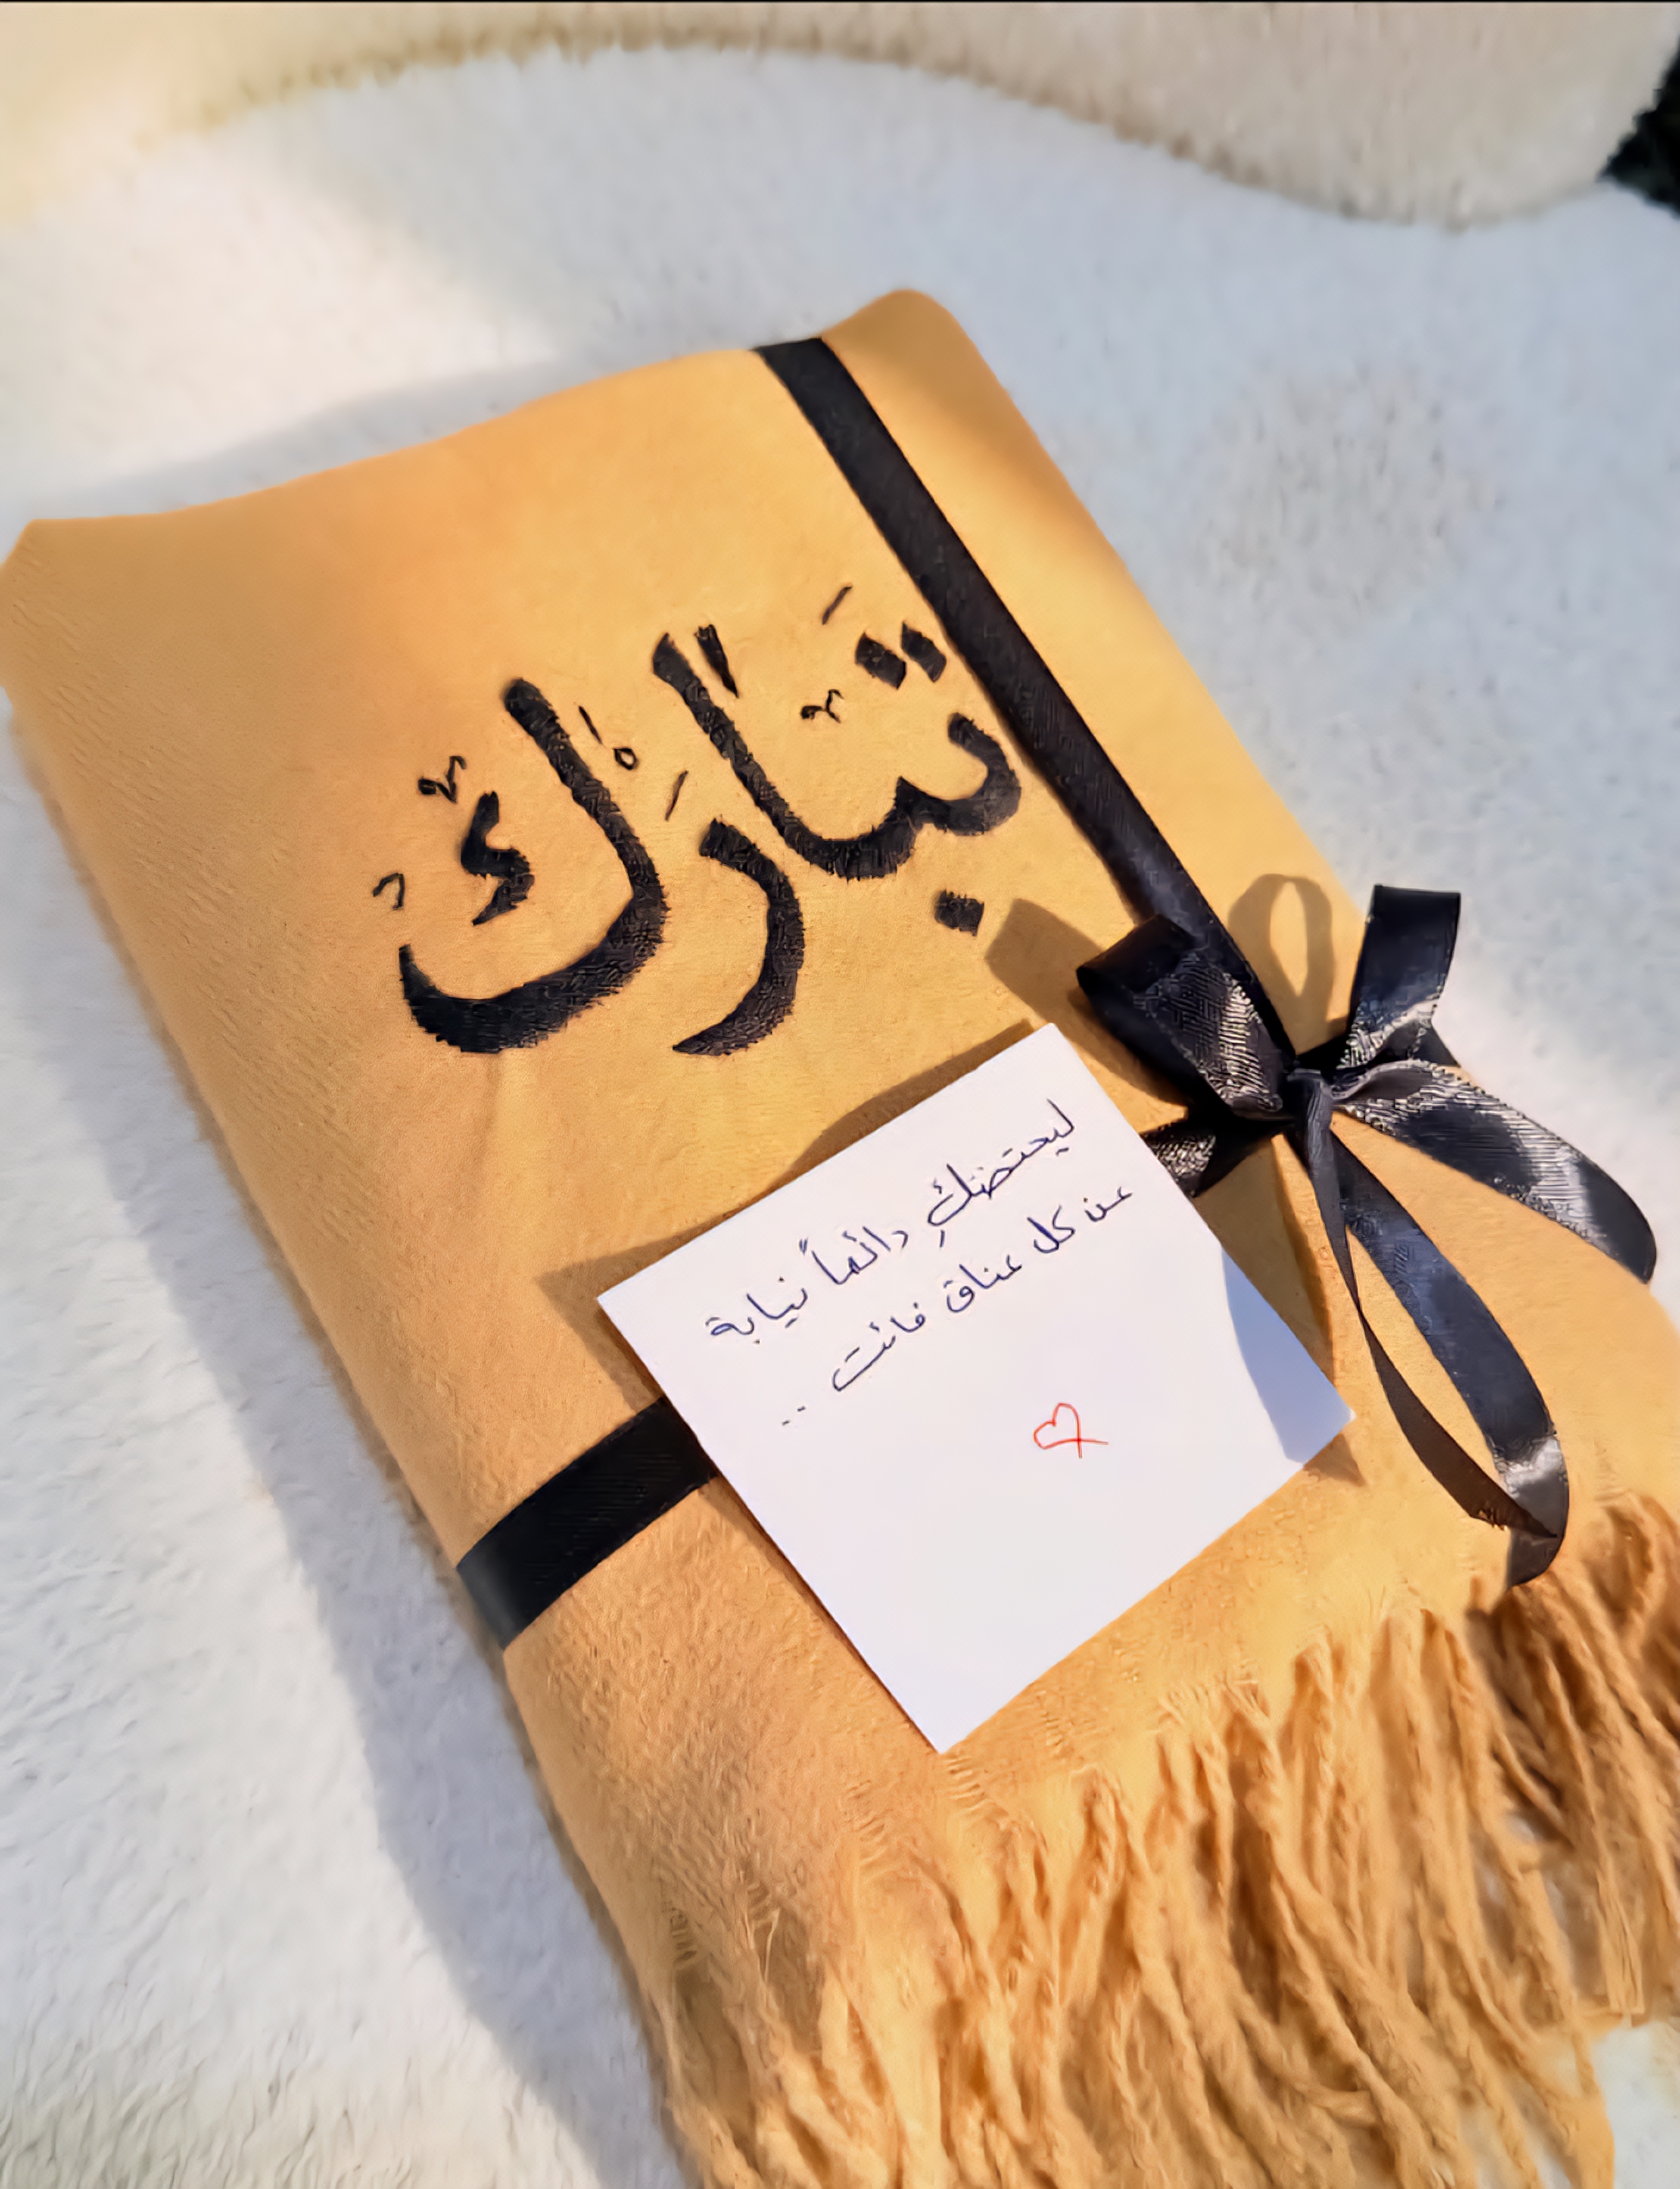 تبارك
ليحتضنكِ دائماً نيابة
عن كل عناق فائت ..